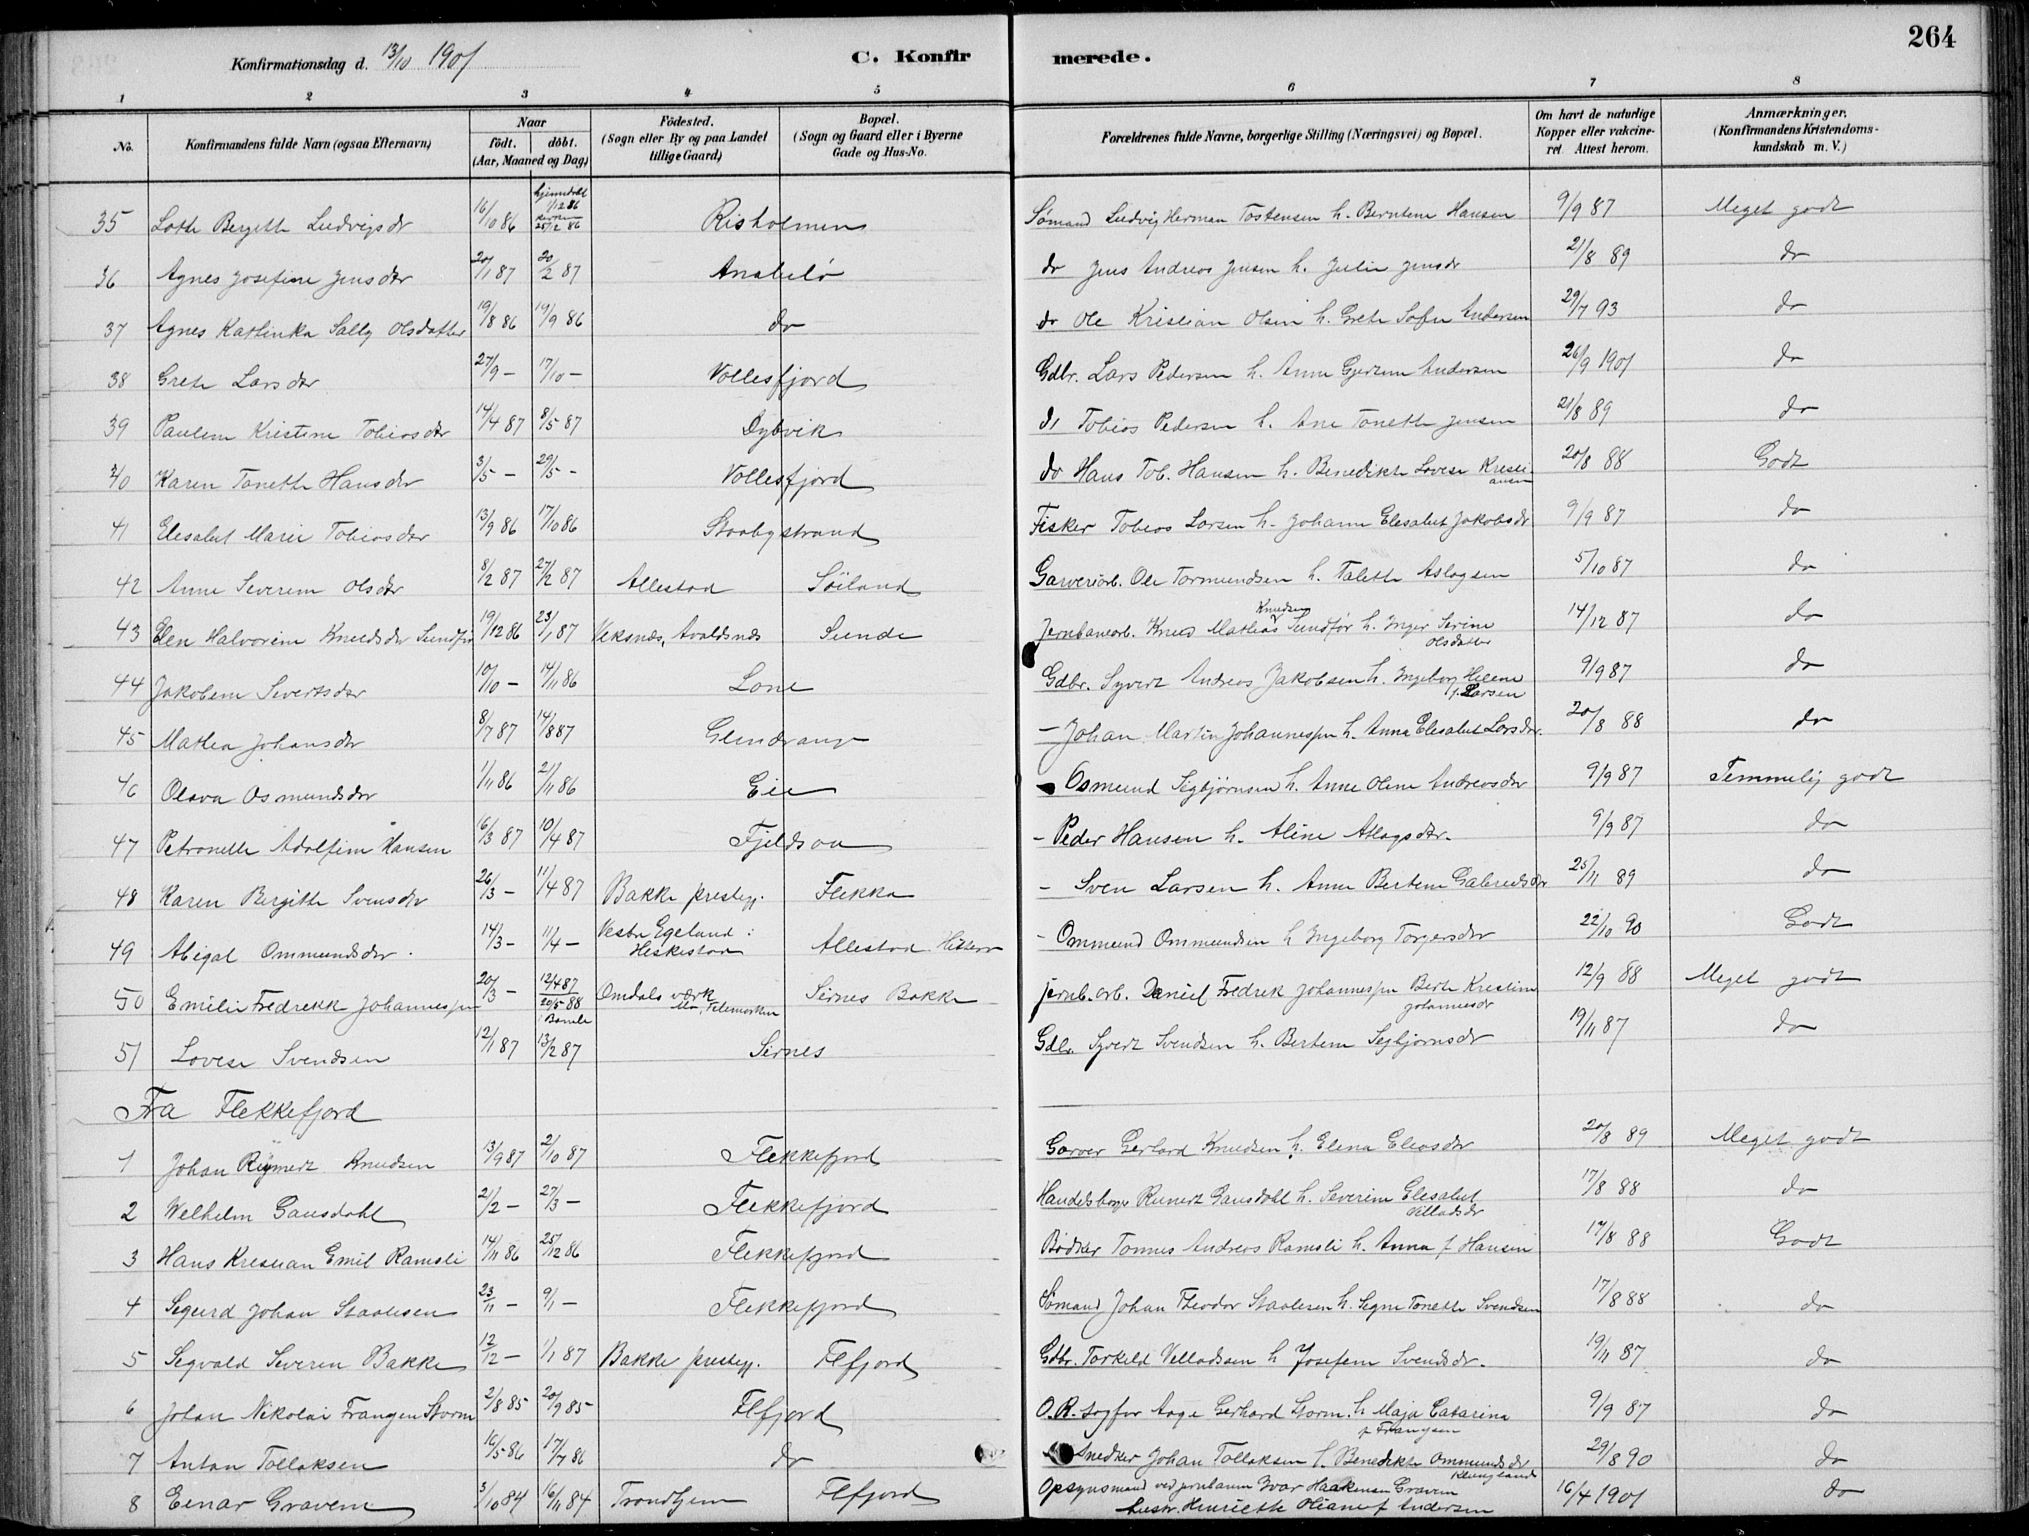 264
Konfirmationsdag d. 13/10 1901
C. Konfirmerede.
1 2 3 4 5 6 7 8
No. Konfirmandens fulde Navn (ogsaa Efternavn) Naar födt. döbt. (Aar, Maaned og Dag) Födested. (Sogn eller By og paa Landet tillige Gaard) Bopæl. (Sogn og Gaard eller i Byerne Gade og Hus-No. Forældrenes fulde Navne, borgerlige Stilling (Næringsvei) og Bopæl. Om havt de naturlige Kopper eller vakcineret. Attest herom. Anmærkninger. (Konfirmandens Kristendomskundskab m. V.)
35 Lotte Bergitte Ludvigsdr 16/10 86 hjemmedøbt 1/12 86 25/12 86 Risholmen Sømand Ludvig Herman Tostensen h. Berntine Hansen 9/9 87 Meget godt
36 Agnes Josefine Jensdtr 20/1 87 20/2 87 Anabelø do Jens Andreas Jensen h. Julie Jensdr 21/8 89 do
37 Agnes Kathinka Sally Olsdatter 19/8 86 19/9 86 do do Ole Kristian Olsen h. Grete Sofie Andersen 29/7 93 do
38 Grete Larsdtr 27/9 - 17/10 - Vollesfjord Gdbr. Lars Pedersen h. Anne Gjertine Andersen 26/9 1901 do
39 Pauline Kristine Tobiasdtr 14/4 87 8/5 87 Dybvik do Tobias Pedersen h. Ane Tonette Jensen 21/8 89 do
40 Karen Tonette Hansdtr 3/5 - 29/5 - Vollesfjord do Hans Tob. Hansen h. Benedikte Lovise Kristiansen 20/8 88 Godt
41 Elisabet Marie Tobiasdtr 13/9 86 17/10 86 Straabystrand Fisker Tobias Larsen h. Johanne Elisabet Jakobsdr 9/9 87 do
42 Anne Severine Olsdtr 8/2 87 27/2 87 Allestad Söiland Garveriarb. Ole Tormundsen h. Talette Aslagsen 5/10 87 do
43 Elen Halvorine Knudsdr Sundfør 19/12 86 23/1 87 Veksnæs, Avaldsnæs Sunde Jernbanearb. Knud Mathias Knudsen Sundför h. Inger Serine Olsdatter 14/12 87 do
44 Jakobine Sivertsdtr 10/10 - 14/11 86 Lone Gdbr. Syvert Andreas Jakobsen h. Ingeborg Helene f. Larsen 9/9 87 do
45 Mathea Johansdtr 8/7 87 14/8 87 Glendrange - Johan Martin Johannessen h. Anna Elisabet Larsdtr. 20/8 88 do
46 Olava Osmundsdtr 1/11 86 21/11 86 Eie - Osmund Sigbjörnsen h. Anne Oline Andreasdtr 9/9 87 Temmelig godt
47 Petronelle Adolfine Hansen 6/3 87 10/4 87 Fjeldsaa - Peder Hansen h. Aline Atlagsdtr. 9/9 87 do
48 Karen Bergitte Svensdtr 26/3 - 11/4 87 Bakke prestegj. Flikka - Sven Larsen h. Anne Bertine Gabrielsdtr 25/11 89 do
49 Abigal Ommundsdtr 14/3 - 11/4 - Vestre Egeland i Heskestad Allestad Hitterø - Ommund Ommundsen h Ingeborg Torgersdtr 22/10 90 Godt
50 Emilie Fredrikke Johannessen 20/3 - 12/4 87 20/5 88 i Bamle Omdals værk Mo, Telemarken Sirnes Bakke jernb. arb. Daniel Fredrik Johannessen Berte Kristine Johannesdr 12/9 88 Meget godt
51 Lovise Svendsen 12/1 87 13/2 87 Sirnes Gdbr. Syvert Svendsen h. Bertine Sigbjørnsdr 19/11 87 do
Fra Flekkefjord
1 Johan Reymert Knudsen 13/9 87 2/10 87 Flekkefjord Garver Gerhard Knudsen h. Elina Eliasdtr 20/8 89 Meget godt
2 Wilhelm Gausdahl 21/2 - 27/3 - Flekkefjord Handelsborger Reinert Gausdahl h. Severine Elisabet Villadsdr 17/8 88 do
3 Hans Kristian Emil Ramsli 14/11 86 25/12 86 Flekkefjord Bødker Tønnes Andreas Ramsli h. Anna f Hansen 17/8 88 Godt
4 Sigurd Johan Staalesen 23/11 - 9/1 - Flekkefjord Sømand Johan Theodor Staalesen h. Signe Tonette Svendsen 17/8 88 do
5 Sigvald Severin Bakke 12/12 - 1/1 87 Bakke prestegj. Flfjord Gdbr. Torkild Villadssen h Josefine Svendsdr. 19/11 87 do
6 Johan Nikolai Frangen Storm 2/8 85 20/9 85 Flfjord O.R. sagfør Aage Gerhard Storm. h Maja Catarina f Frangsen 9/9 87 do
7 Anton Tollaksen 16/5 86 17/7 86 do Snedker Johan Tollaksen h. Benedikte Ommundsdr Klungland 29/8 90 do
8 Einar Gravem 3/10 84 16/11 84 Trondhjem Flfjord Opsynsmand ved jernbanen Ivar Haakensen Gravem hustr. Henriette Oliane f Andersen 16/4 1901 do